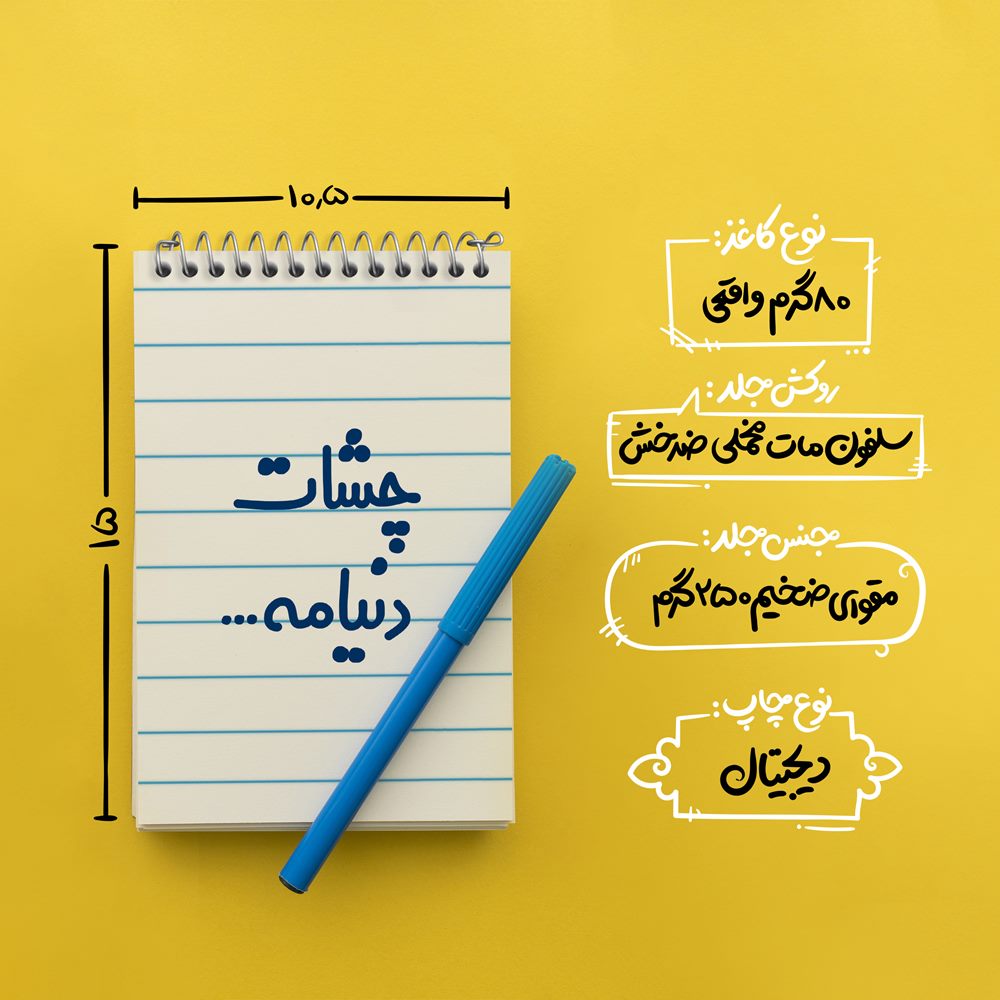 ۱۰٫۵
۱۵
چشات
دنیامه...
نوع کاغذ:
۸۰گرم واقعی
روکش جلد:
سلفون مات مخملی ضدخش
جنس جلد:
مقوای ضخیم ۲۵۰گرم
نوع چاپ:
دیجیتال